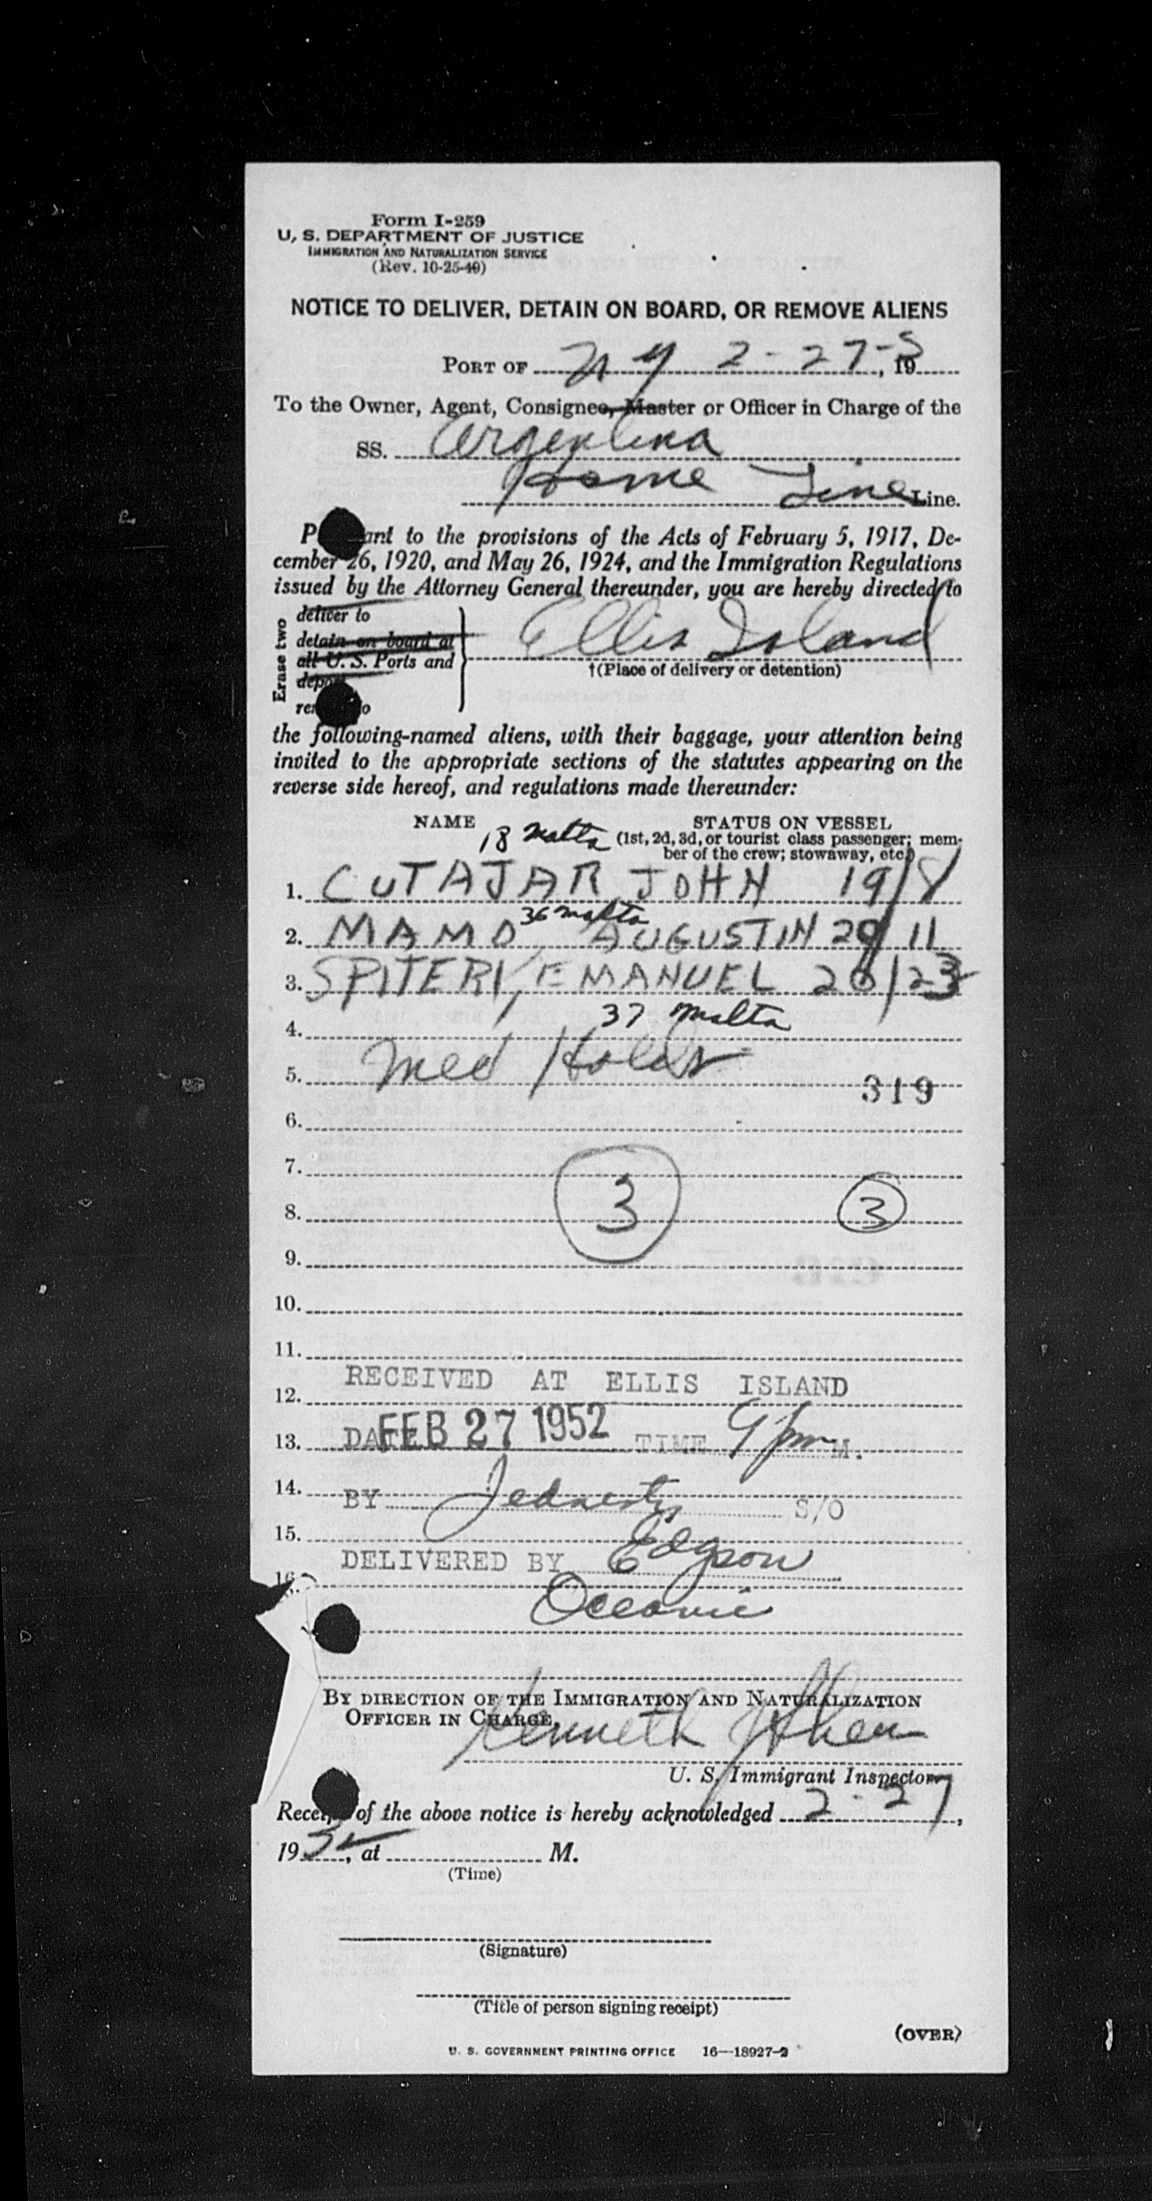 Form I-259
U. S. DEPARTMENT OF JUSTICE
IMMIGRATION AND NATURALIZATION SERVICE
(Rev. 10-25-49)
NOTICE TO DELIVER, DETAIN ON BOARD, OR REMOVE ALIENS
PORT OF NY 2-27-5, 19
To the Owner, Agent, Consignee, Master or Officer in Charge of the
SS. Argentina
Home Line Line.
to the provisions of the Acts of February 5, 1917, De-
cember 26, 1920, and May 26, 1924, and the Immigration Regulations
issued by the Attorney General thereunder, you are hereby directed to
Erase two
deliver to
detain on board at
all U. S. Ports and
Ellis Island
†(Place of delivery or detention)
the following-named aliens, with their baggage, your attention being
invited to the appropriate sections of the statutes appearing on the
reverse side hereof, and regulations made thereunder:
NAME STATUS ON VESSEL
18 Malta (1st, 2d, 3d, or tourist class passenger; mem-
ber of the crew; stowaway, etc.)
1. CUTAJAR JOHN 19/8
36 Malta
2. MAMO, AUGUSTIN 29/11
3. SPITERI, EMANUEL 20/23
37 Malta
4.
Med Holds
5.
319
6.
7.
3 3
8.
9.
10.
11.
RECEIVED AT ELLIS ISLAND
12.
13. DATE FEB 27 1952 TIME 9 pm M.
14.
BY S/O
15.
DELIVERED BY Edyson
16.
Oceanic
BY DIRECTION OF THE IMMIGRATION AND NATURALIZATION
OFFICER IN CHARGE
Kenneth
U. S. Immigrant Inspector.
Receipt of the above notice is hereby acknowledged 2-27,
1952, at M.
(Time)
(Signature)
(Title of person signing receipt)
(OVER)
U. S. GOVERNMENT PRINTING OFFICE 16—18927-2